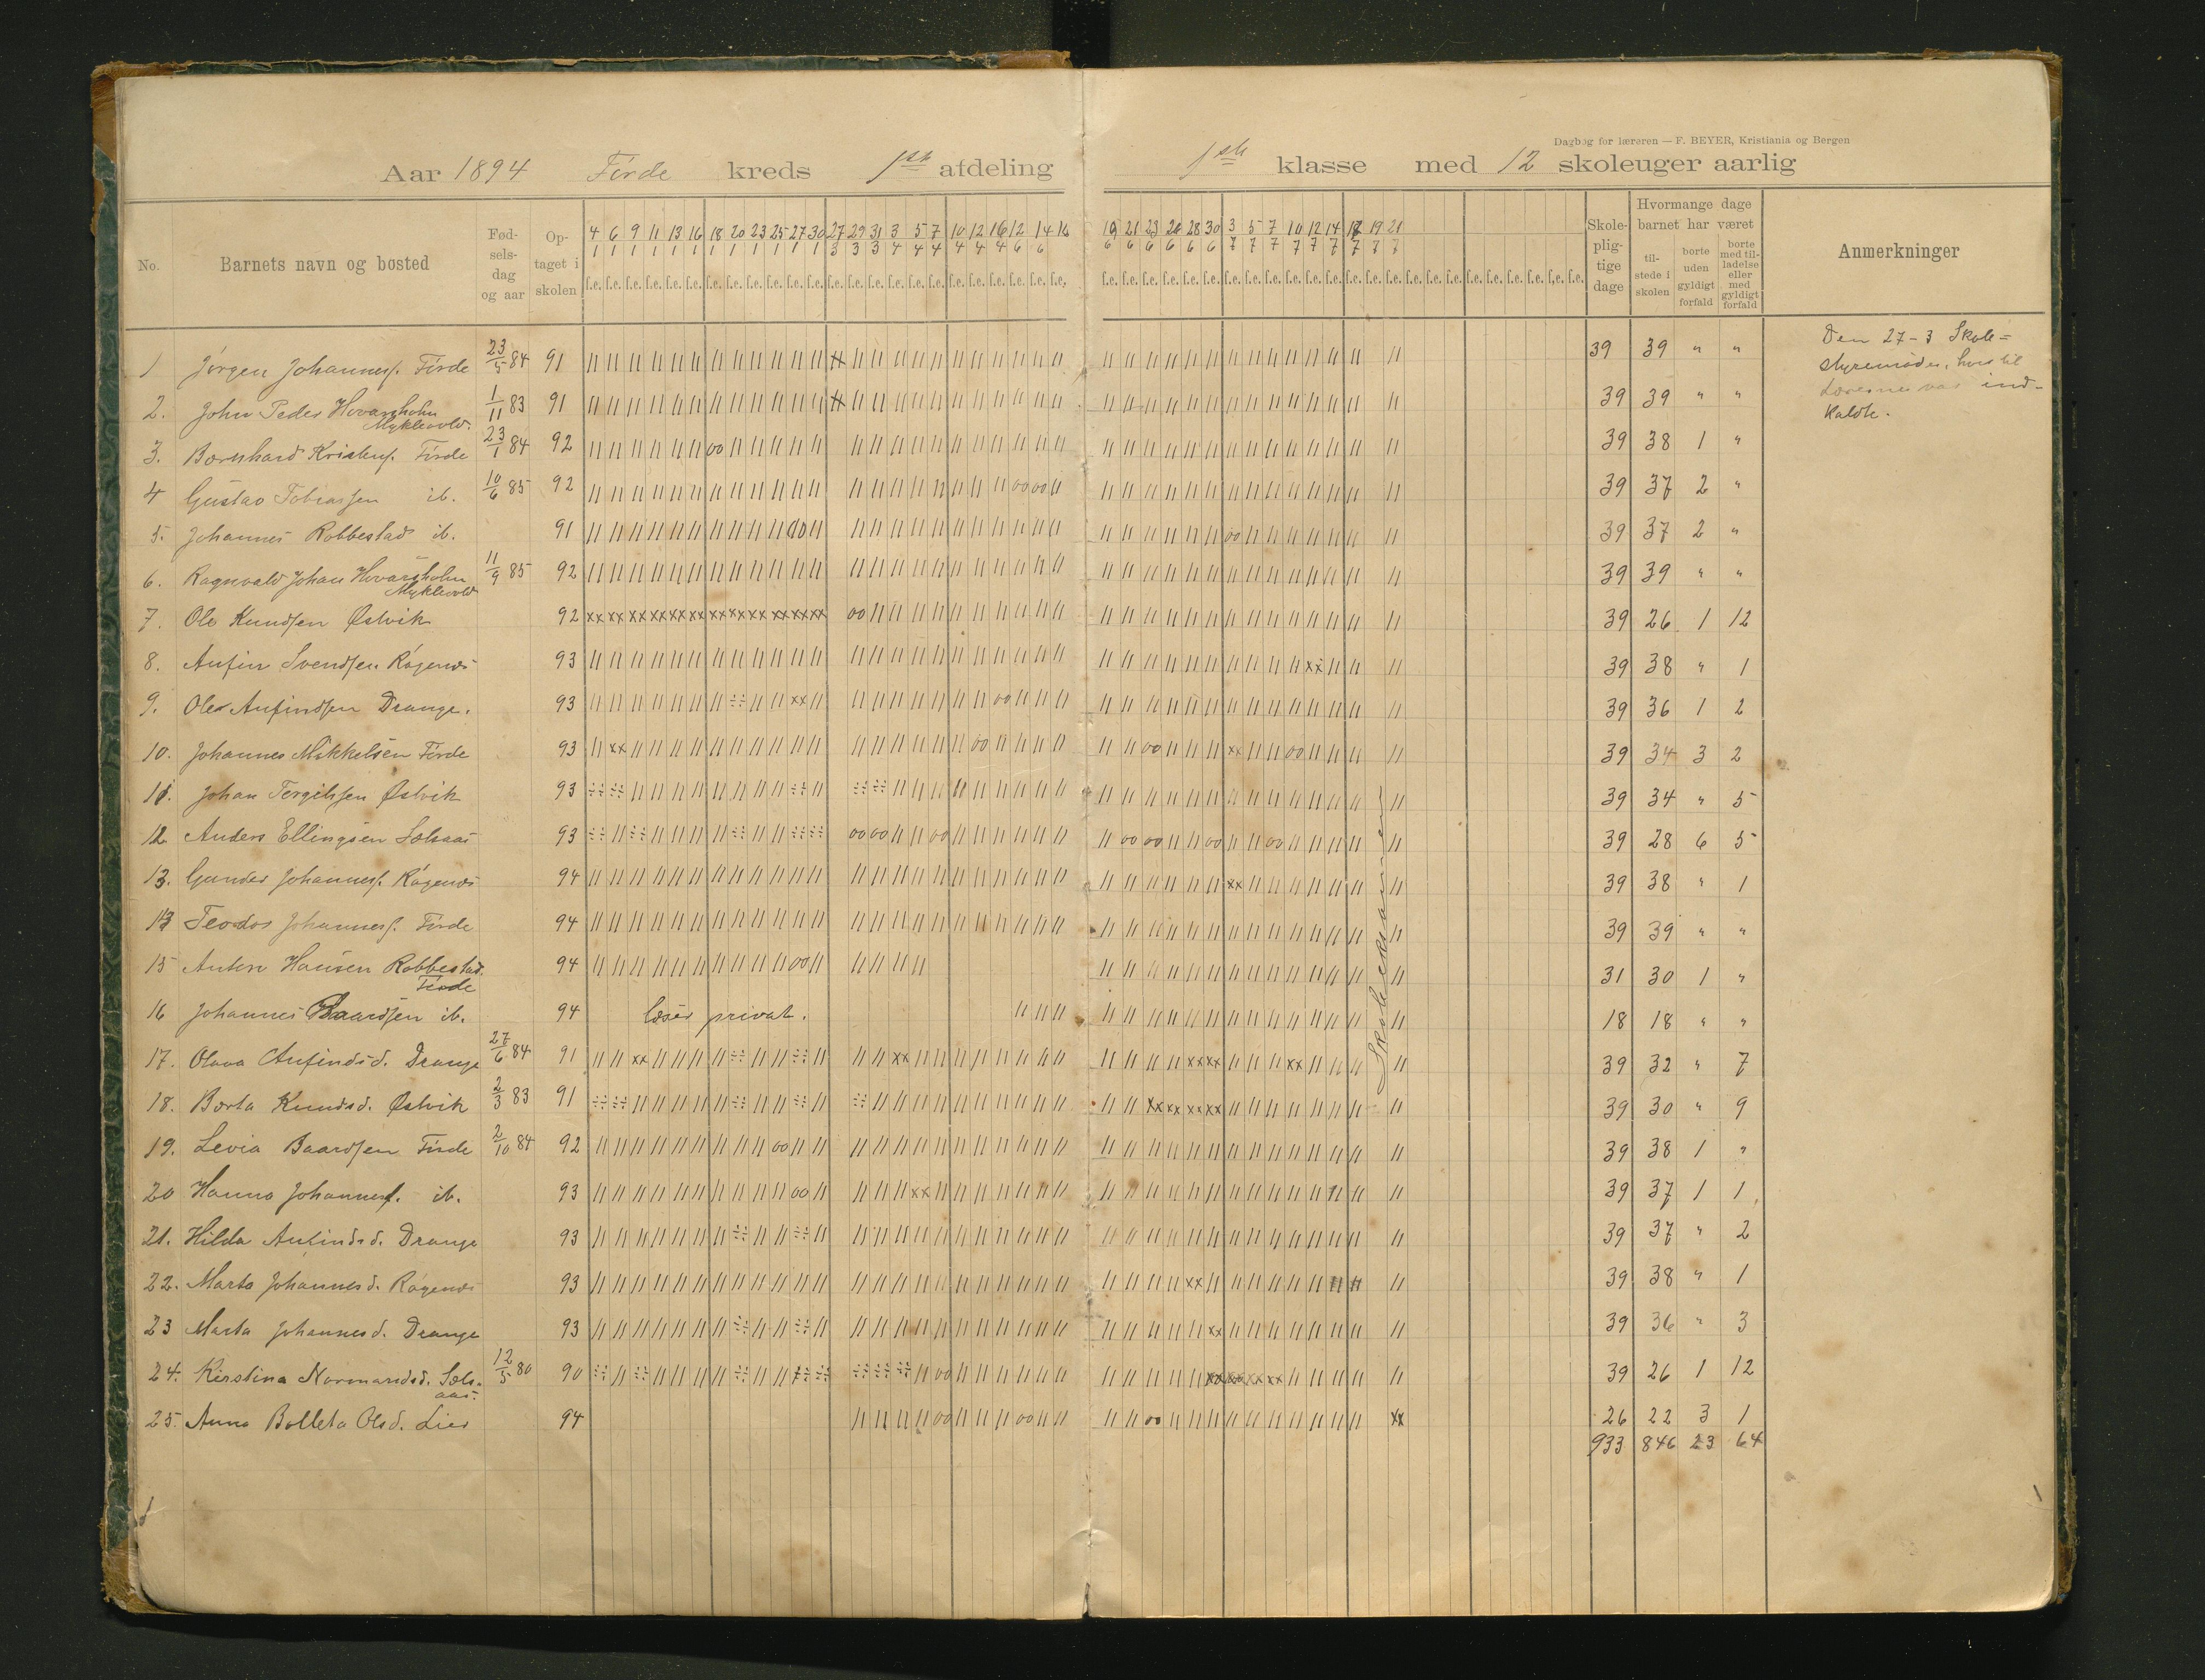 Dagbog for læreren — F. BEYER, Kristiania og Bergen
Aar 1894 Förde kreds 1ste afdeling 1ste klasse med 12 skoleuger aarlig
No. Barnets navn og bosted Fød- selsdag og aar Op- taget i skolen
Skole- plig- tige dage
Hvormange dage barnet har været
til- stede i skolen
borte uden gyldigt forfald
borte med til- ladelse eller med gyldigt forfald
Anmerkninger
4 6 9 11 13 16 18 20 23 25 27 30 27 29 31 3 5 7 10 12 16 12 14 16
1 1 1 1 1 1 1 1 1 1 1 1 3 3 3 4 4 4 4 4 4 6 6
19 21 23 26 28 30 3 5 7 10 12 14 17 19 21
6 6 6 6 6 6 7 7 7 7 7 7 7 7 7
f.e. f.e. f.e. f.e. f.e. f.e. f.e. f.e. f.e. f.e. f.e. f.e. f.e. f.e. f.e. f.e. f.e. f.e. f.e. f.e. f.e. f.e. f.e. f.e.
f.e. f.e. f.e. f.e. f.e. f.e. f.e. f.e. f.e. f.e. f.e. f.e. f.e. f.e. f.e. f.e. f.e. f.e. f.e. f.e. f.e. f.e. f.e. f.e.
1 Jörgen Johannesf. Förde 23/5 84 91 39 39 " "
2. John Peder Hovarsholm Myklevold. 1/11 83 91 39 39 " "
3. Bernhard Kristensf. Förde 23/1 84 92 39 38 1 "
4 Gustav Tobiassen ib. 10/6 85 92 39 37 2 "
5. Johannes Robbestad ib. 91 39 37 2 "
6. Ragnvald Johan Hovarsholm Myklevold 11/9 85 92 39 39 " "
7. Ole Knudsen Østvik 92 39 26 1 12
8. Anfin Svendsen Rögenes 93 39 38 " 1
9. Ole Anfindsen Drange. 93 39 36 1 2
10. Johannes Mikkelsen Förde 93 39 34 3 2
11. Johan Tergilssen Østvik 93 39 34 " 5
12. Anders Ellingsen Solsaas 93 39 28 6 5
13. Gunder Johannesf. Rögenes 94 39 38 " 1
14 Teodor Johannesf. Förde 94 39 39 " "
15 Anton Hansen Robbestad. Förde 94 31 30 1 "
16 Johannes Baardsen ib. 94 læser privat. 18 18 " "
17. Olava Anfindsd. Drange 27/6 84 91 39 32 " 7
18. Berta Knudsd. Østvik 2/3 83 91 39 30 " 9
19. Levia Baardsen Förde 2/10 84 92 39 38 1 "
20 Hanna Johannesf. ib. 93 39 37 1 1
21. Hilda Anfindsd. Drange 93 39 37 " 2
22. Marta Johannesd. Rögenes 93 39 38 " 1
23 Marta Johannesd. Drange 93 39 36 " 3
24. Kirstina Normandsd. Sols- aas. 12/5 80 90 39 26 1 12
25. Anna Bolleta Olsd. Lier 94 26 22 3 1
933 846 23 64
Skoleeksamen
Den 27-3 Skole=
styremöde, hvortil
Lærerne var ind-
kaldte.